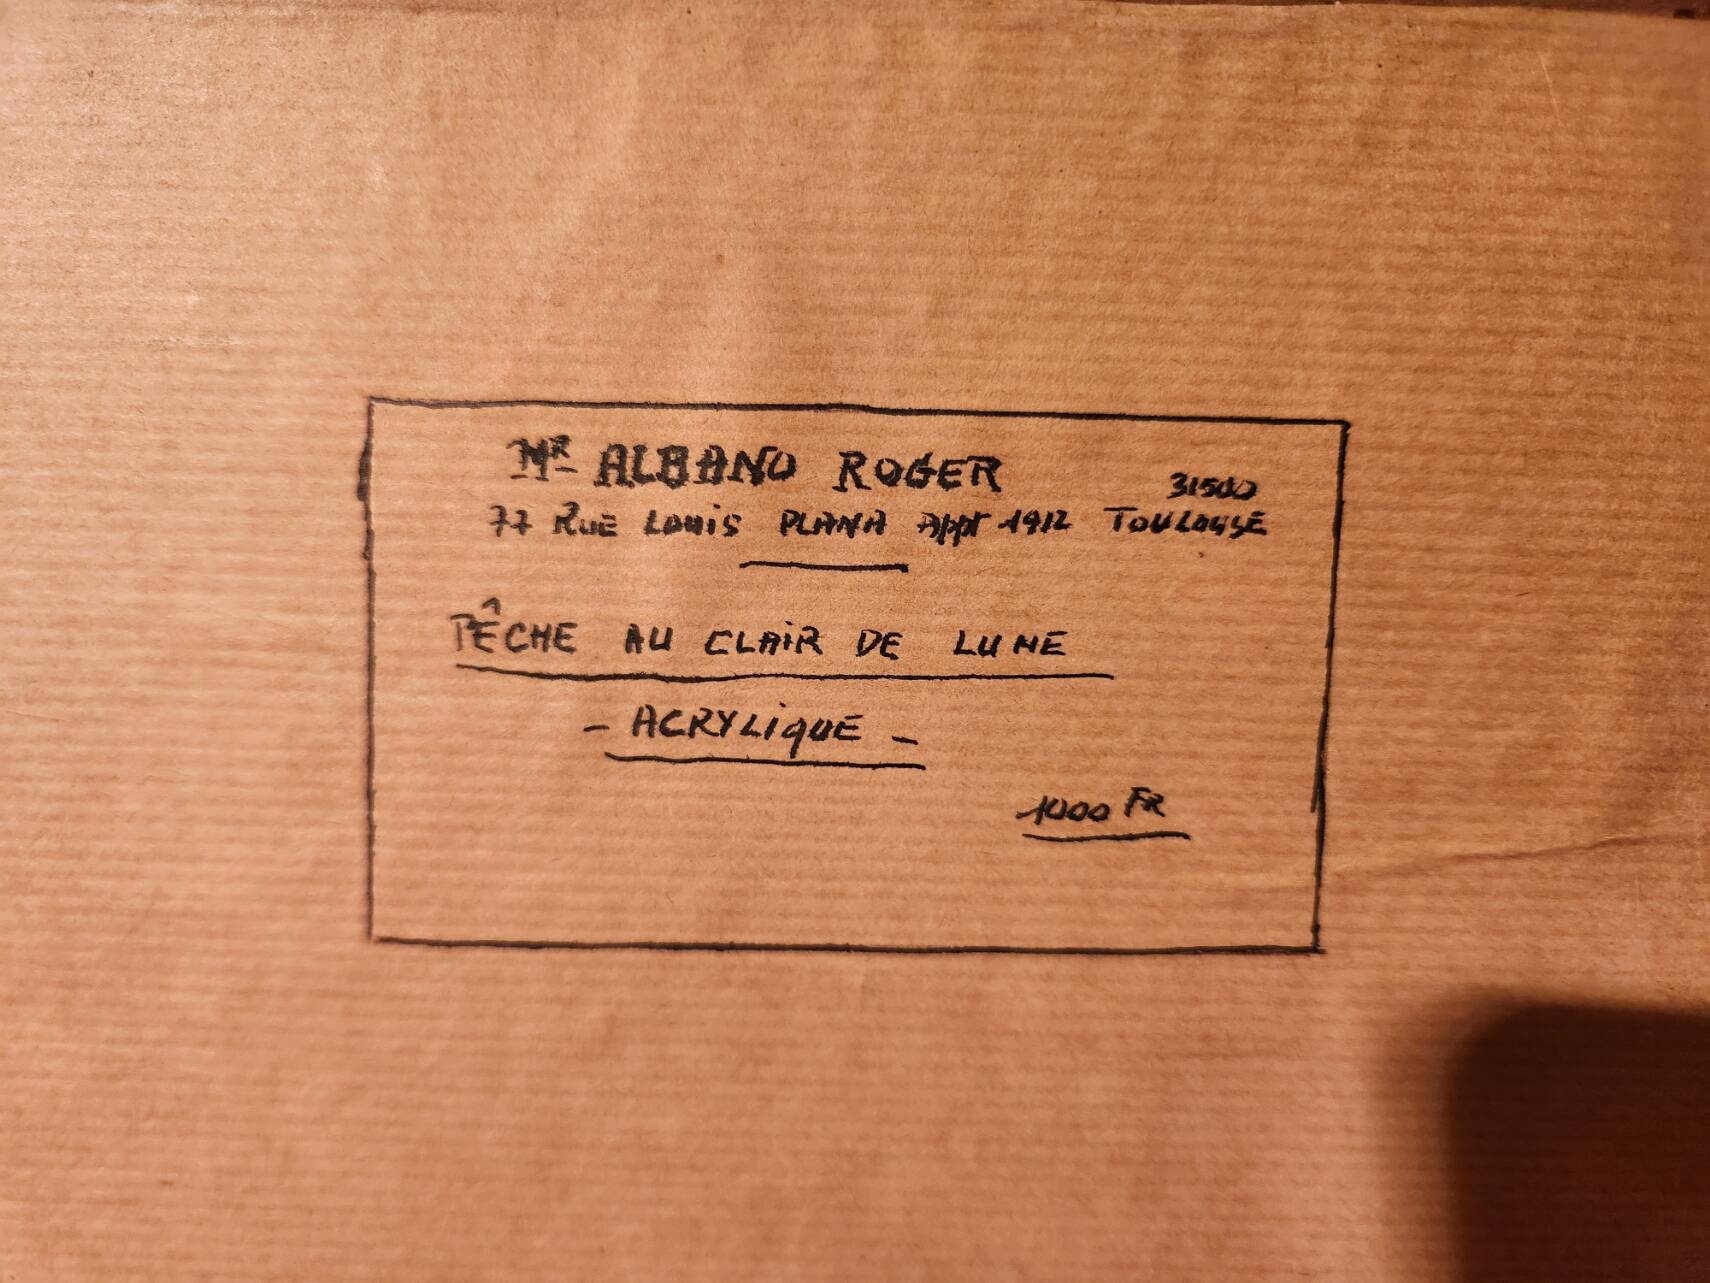 MR ALBANO ROGER
31500
77 RUE LOUIS PLANA Appt 1912 TOULOUSE
PÊCHE AU CLAIR DE LUNE
- ACRYLIQUE -
1000 FR